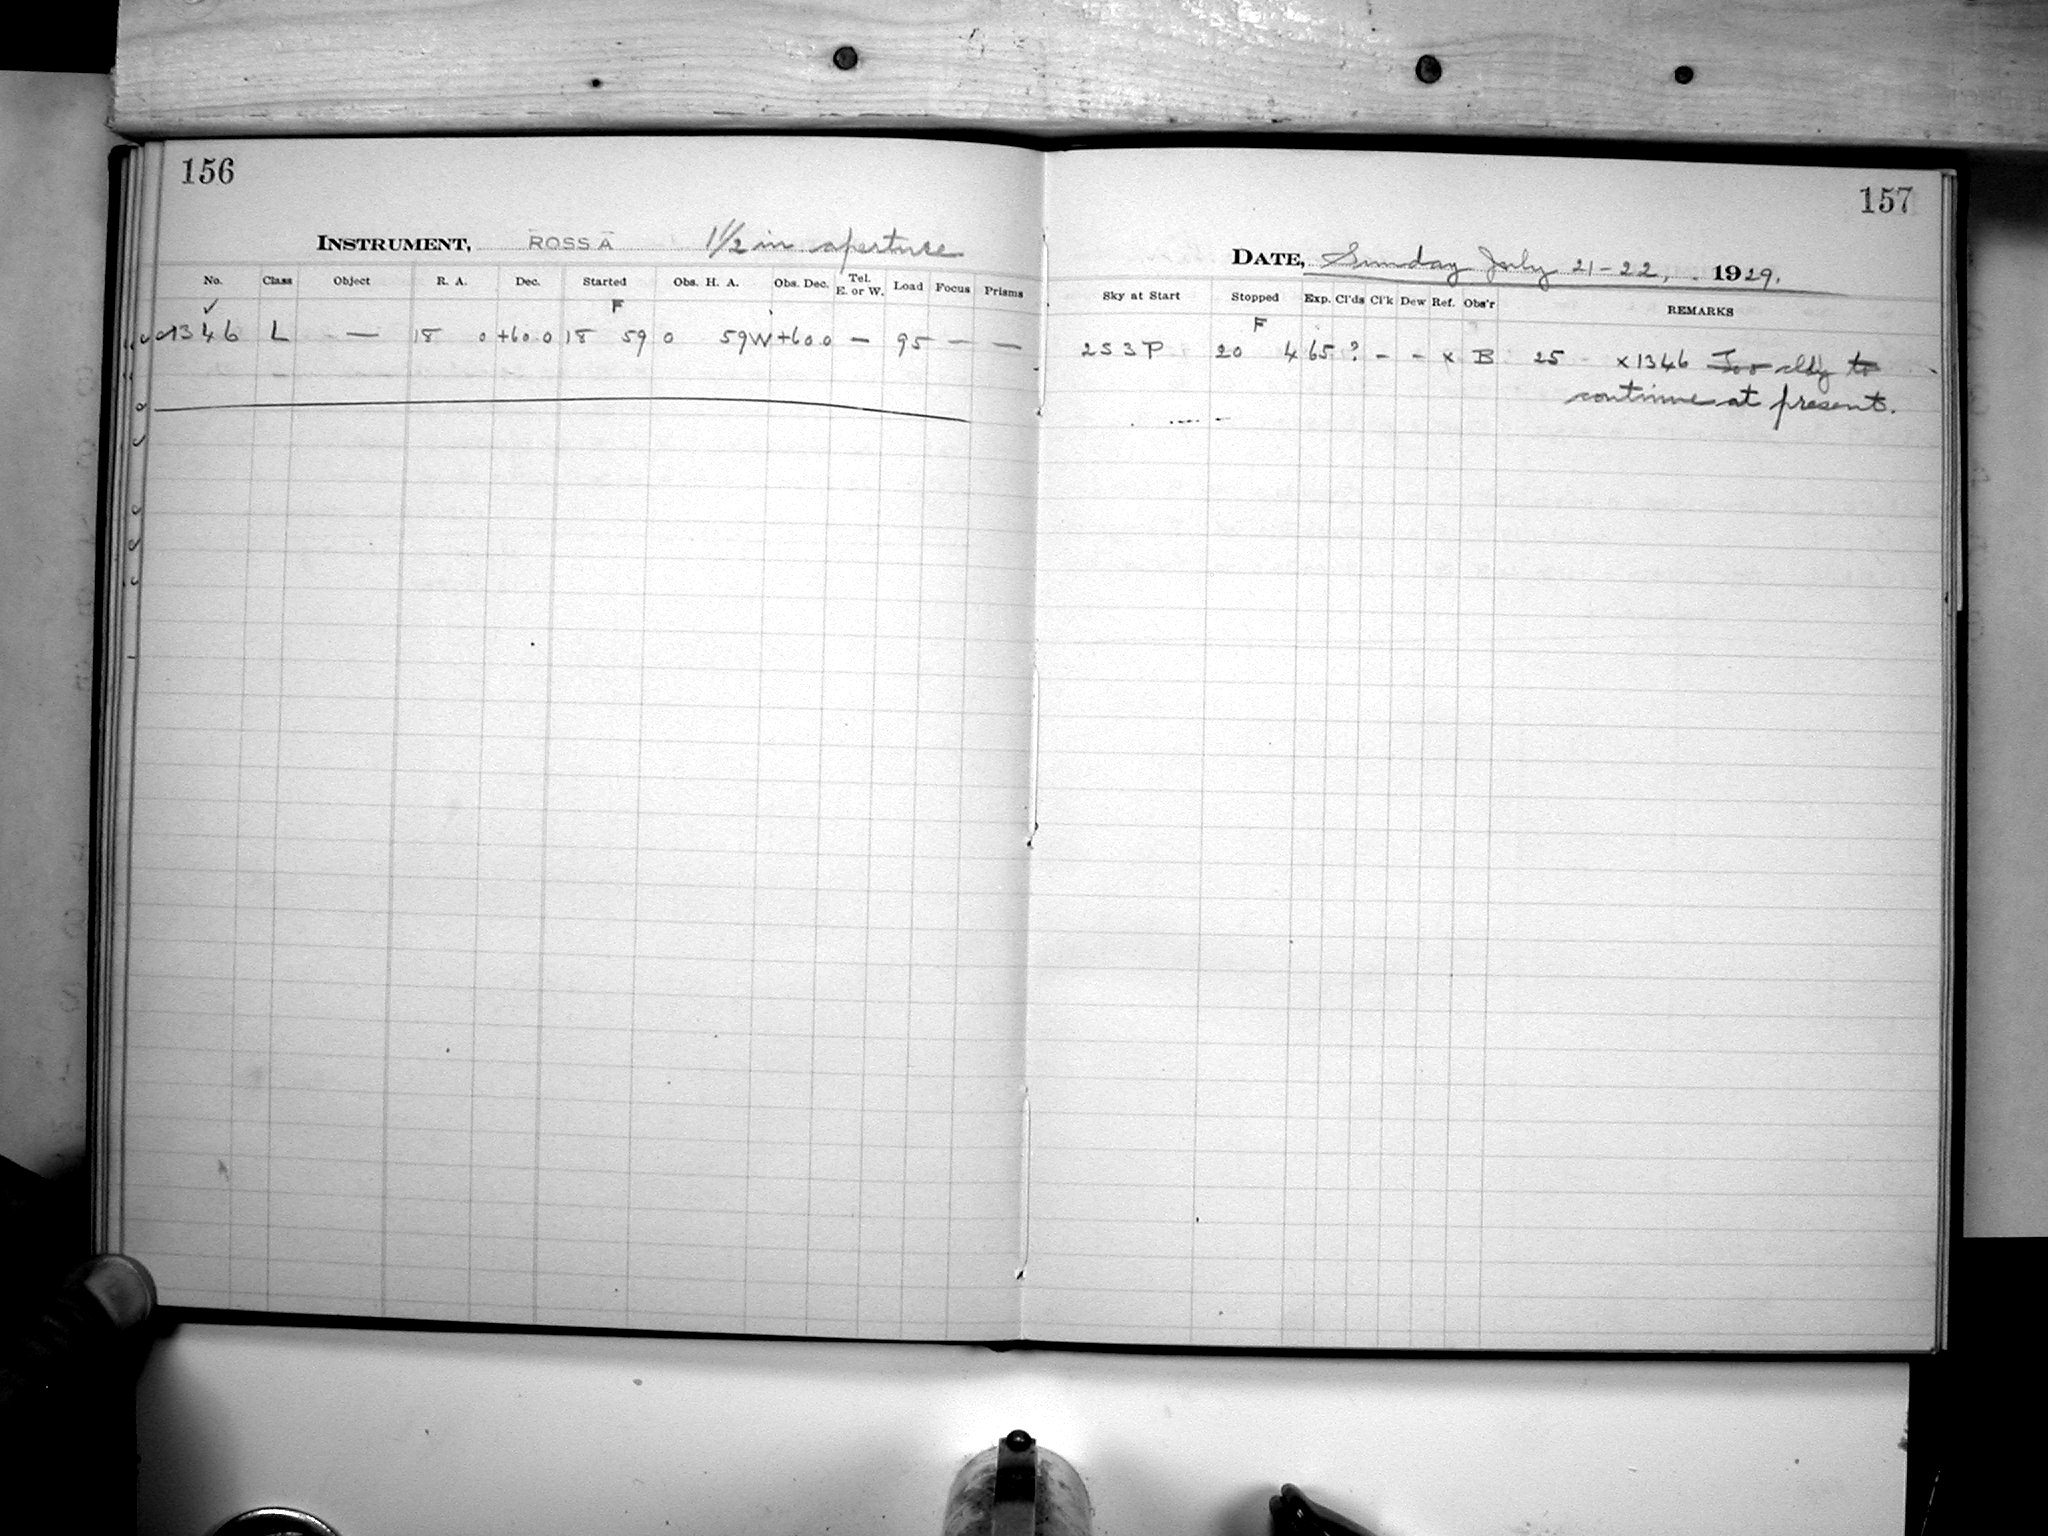 156
INSTRUMENT, ROSS A 1½ in aperture
No. Class Object R. A. Dec. Started Obs. H. A. Obs. Dec. Tel. E. or W. Load Focus Prisms
✓ F
1346 L — 18 0 +60.0 18 59 0 59W +60.0 — 95 — —
157
DATE, Sunday July 21-22, 1929.
Sky at Start Stopped Exp. Cl'ds Cl'k Dew Ref. Obs'r REMARKS
F
2S3P 20 4 65 ? - - x B 25 x1346 Too cldy to
continue at present.